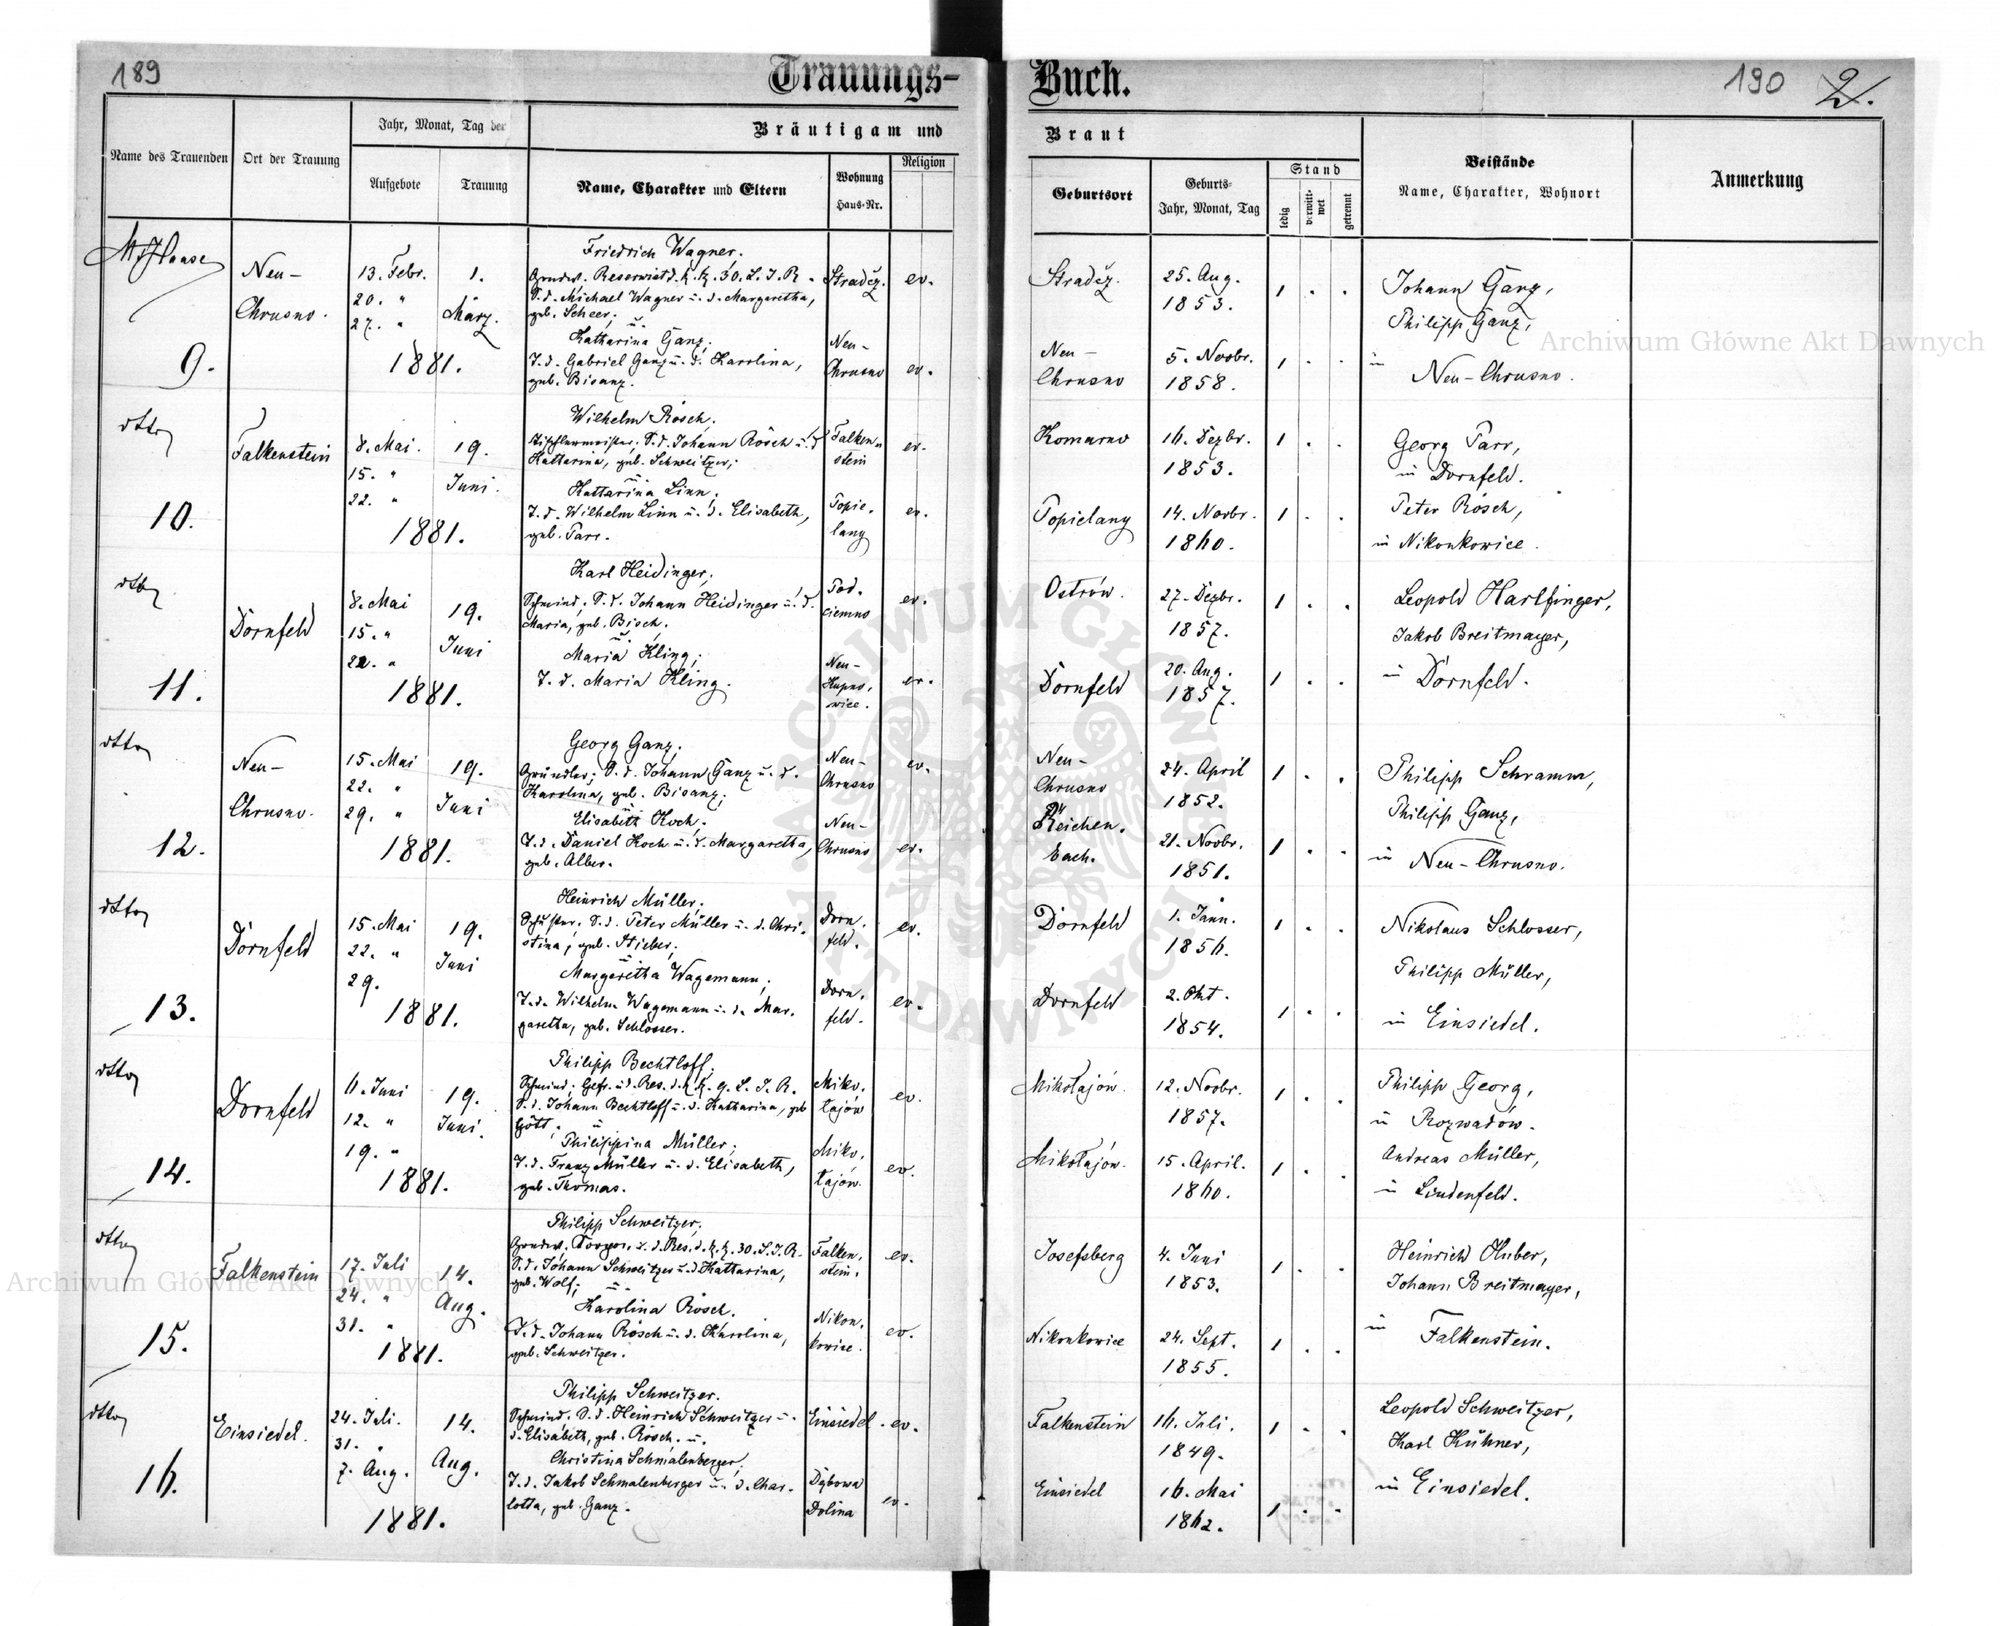 189
Trauungs-
Buch.
190 2.
Name des Trauenden
Ort der Trauung
Jahr, Monat, Tag der
Aufgebote
Trauung
Bräutigam und
Name, Charakter und Eltern
Wohnung
Haus-Nr.
Religion
Braut
Geburtsort
Geburts-
Jahr, Monat, Tag
Stand
ledig
verwit-
wet
getrennt
Beistände
Name, Charakter, Wohnort
Anmerkung
9.
Neu-
Chrusno.
13. Febr.
20. "
27. "
1.
März.
1881.
Friedrich Wagner,
Grundw. Reservist d. k. k. 30. L. I. R.
S. d. Michael Wagner u. d. Margaretha,
geb. Scheer;
u.
Katharina Ganz;
T. d. Gabriel Ganz u. d. Karolina,
geb. Bisanz.
Stradcz.
ev.
Neu-
Chrusno
ev.
Stradcz.
25. Aug.
1853.
1 . .
Neu-
Chrusno
5. Novbr.
1858.
1 . .
Johann Ganz,
Philipp Ganz,
in
Neu-Chrusno.
dtto
10.
Falkenstein
8. Mai.
15. "
22. "
19.
Juni.
1881.
Wilhelm Rösch,
Tischlermeister. S. d. Johann Rösch u. d.
Kattarina, geb. Schweitzer;
u.
Kattarina Linn;
T. d. Wilhelm Linn u. d. Elisabeth,
geb. Parr.
Falken-
stein
ev.
Topie-
lang
ev.
Komarno
16. Dezbr.
1853.
1 . .
Topielang
14. Novbr.
1860.
1 . .
Georg Parr,
in Dornfeld.
Peter Rösch,
in Nikonkowice.
dtto
11.
Dornfeld
8. Mai
15. "
22. "
19.
Juni
1881.
Karl Heidinger;
Schmied; S. d. Johann Heidinger u. d.
Maria, geb. Bisch,
u.
Maria Kling;
T. d. Maria Kling.
Pod-
ciemno
ev.
Neu-
Kupno-
wice.
ev.
Ostrów.
27. Dezbr.
1857.
1 . .
Dornfeld
20. Aug.
1857.
1 . .
Leopold Harlfinger,
Jakob Breitmayer,
in Dornfeld.
dtto
12.
Neu-
Chrusno.
15. Mai
22. "
29. "
19.
Juni
1881.
Georg Ganz;
Gründler; S. d. Johann Ganz u. d.
Karolina, geb. Bisanz;
u.
Elisabeth Koch.
T. d. Daniel Koch u. d. Margaretha,
geb. Alber.
Neu-
Chrusno
ev.
Neu-
Chrusno
ev.
Neu-
Chrusno
24. April
1852.
1 . .
Reichen-
bach.
21. Novbr.
1851.
1 . .
Philipp Schramm,
Philipp Ganz,
in Neu-Chrusno.
dtto
13.
Dornfeld
15. Mai
22. "
29.
19.
Juni
1881.
Heinrich Müller;
Schuster. S. d. Peter Müller u. d. Chri-
stina, geb. Stieber;
u.
Margeretha Wagemann;
T. d. Wilhelm Wagemann u. d. Mar-
garetha, geb. Schlosser.
Dorn-
feld.
ev.
Dorn-
feld.
ev.
Dornfeld
1. Jänn.
1856.
1 . .
Dornfeld
2. Okt.
1854.
1 . .
Nikolaus Schlosser,
Philipp Müller,
in Einsiedel.
dtto
14.
Dornfeld
6. Juni
12. "
19. "
19.
Juni.
1881.
Philipp Bechtloff;
Schmied; Gefr. i. d. Res. d. k. k. 9. L. I. R.
S. d. Johann Bechtloff u. d. Katharina, geb.
Gött;
u
Philippina Müller;
T. d. Franz Müller u. d. Elisabeth,
geb. Thomas.
Miko-
łajów
ev.
Miko-
łajów.
ev.
Mikołajów.
12. Novbr.
1857.
1 . .
Mikołajów.
15. April.
1860.
1 . .
Philipp Georg,
in Rozwadów.
Andreas Müller,
in Lindenfeld.
dtto
15.
Falkenstein
17. Juli
24. "
31. "
14.
Aug.
1881.
Philipp Schweitzer.
Grundw. i. d. Res. d. k. k. 30. L. I. R.
S. d. Johann Schweitzer u. d. Kattarina,
geb. Wolf;
u.
Karolina Rösch.
T. d. Johann Rösch u. d. Karolina,
geb. Schweitzer.
Falken-
stein.
ev.
Nikon-
kowice.
ev.
Josefsberg
4. Juni
1853.
1 . .
Nikonkowice
24. Sept.
1855.
1 . .
Heinrich Huber,
Johann Breitmayer,
in Falkenstein.
dtto
16.
Einsiedel.
24. Juli.
31. "
7. Aug.
14.
Aug.
1881.
Philipp Schweitzer.
Schmied. S. d. Heinrich Schweitzer u.
d. Elisabeth, geb. Rösch. u.
Christina Schmalenberger;
T. d. Jakob Schmalenberger u. d. Char-
lotta, geb. Ganz.
Einsiedel.
ev.
Dąbowa
Dolina
ev.
Falkenstein
16. Juli.
1849.
1 . .
Einsiedel
16. Mai
1862.
1 . .
Leopold Schweitzer,
Karl Kühner,
in Einsiedel.
Archiwum Główne Akt Dawnych
Archiwum Główne Akt Dawnych
ARCHIWUM GŁÓWNE AKT DAWNYCH